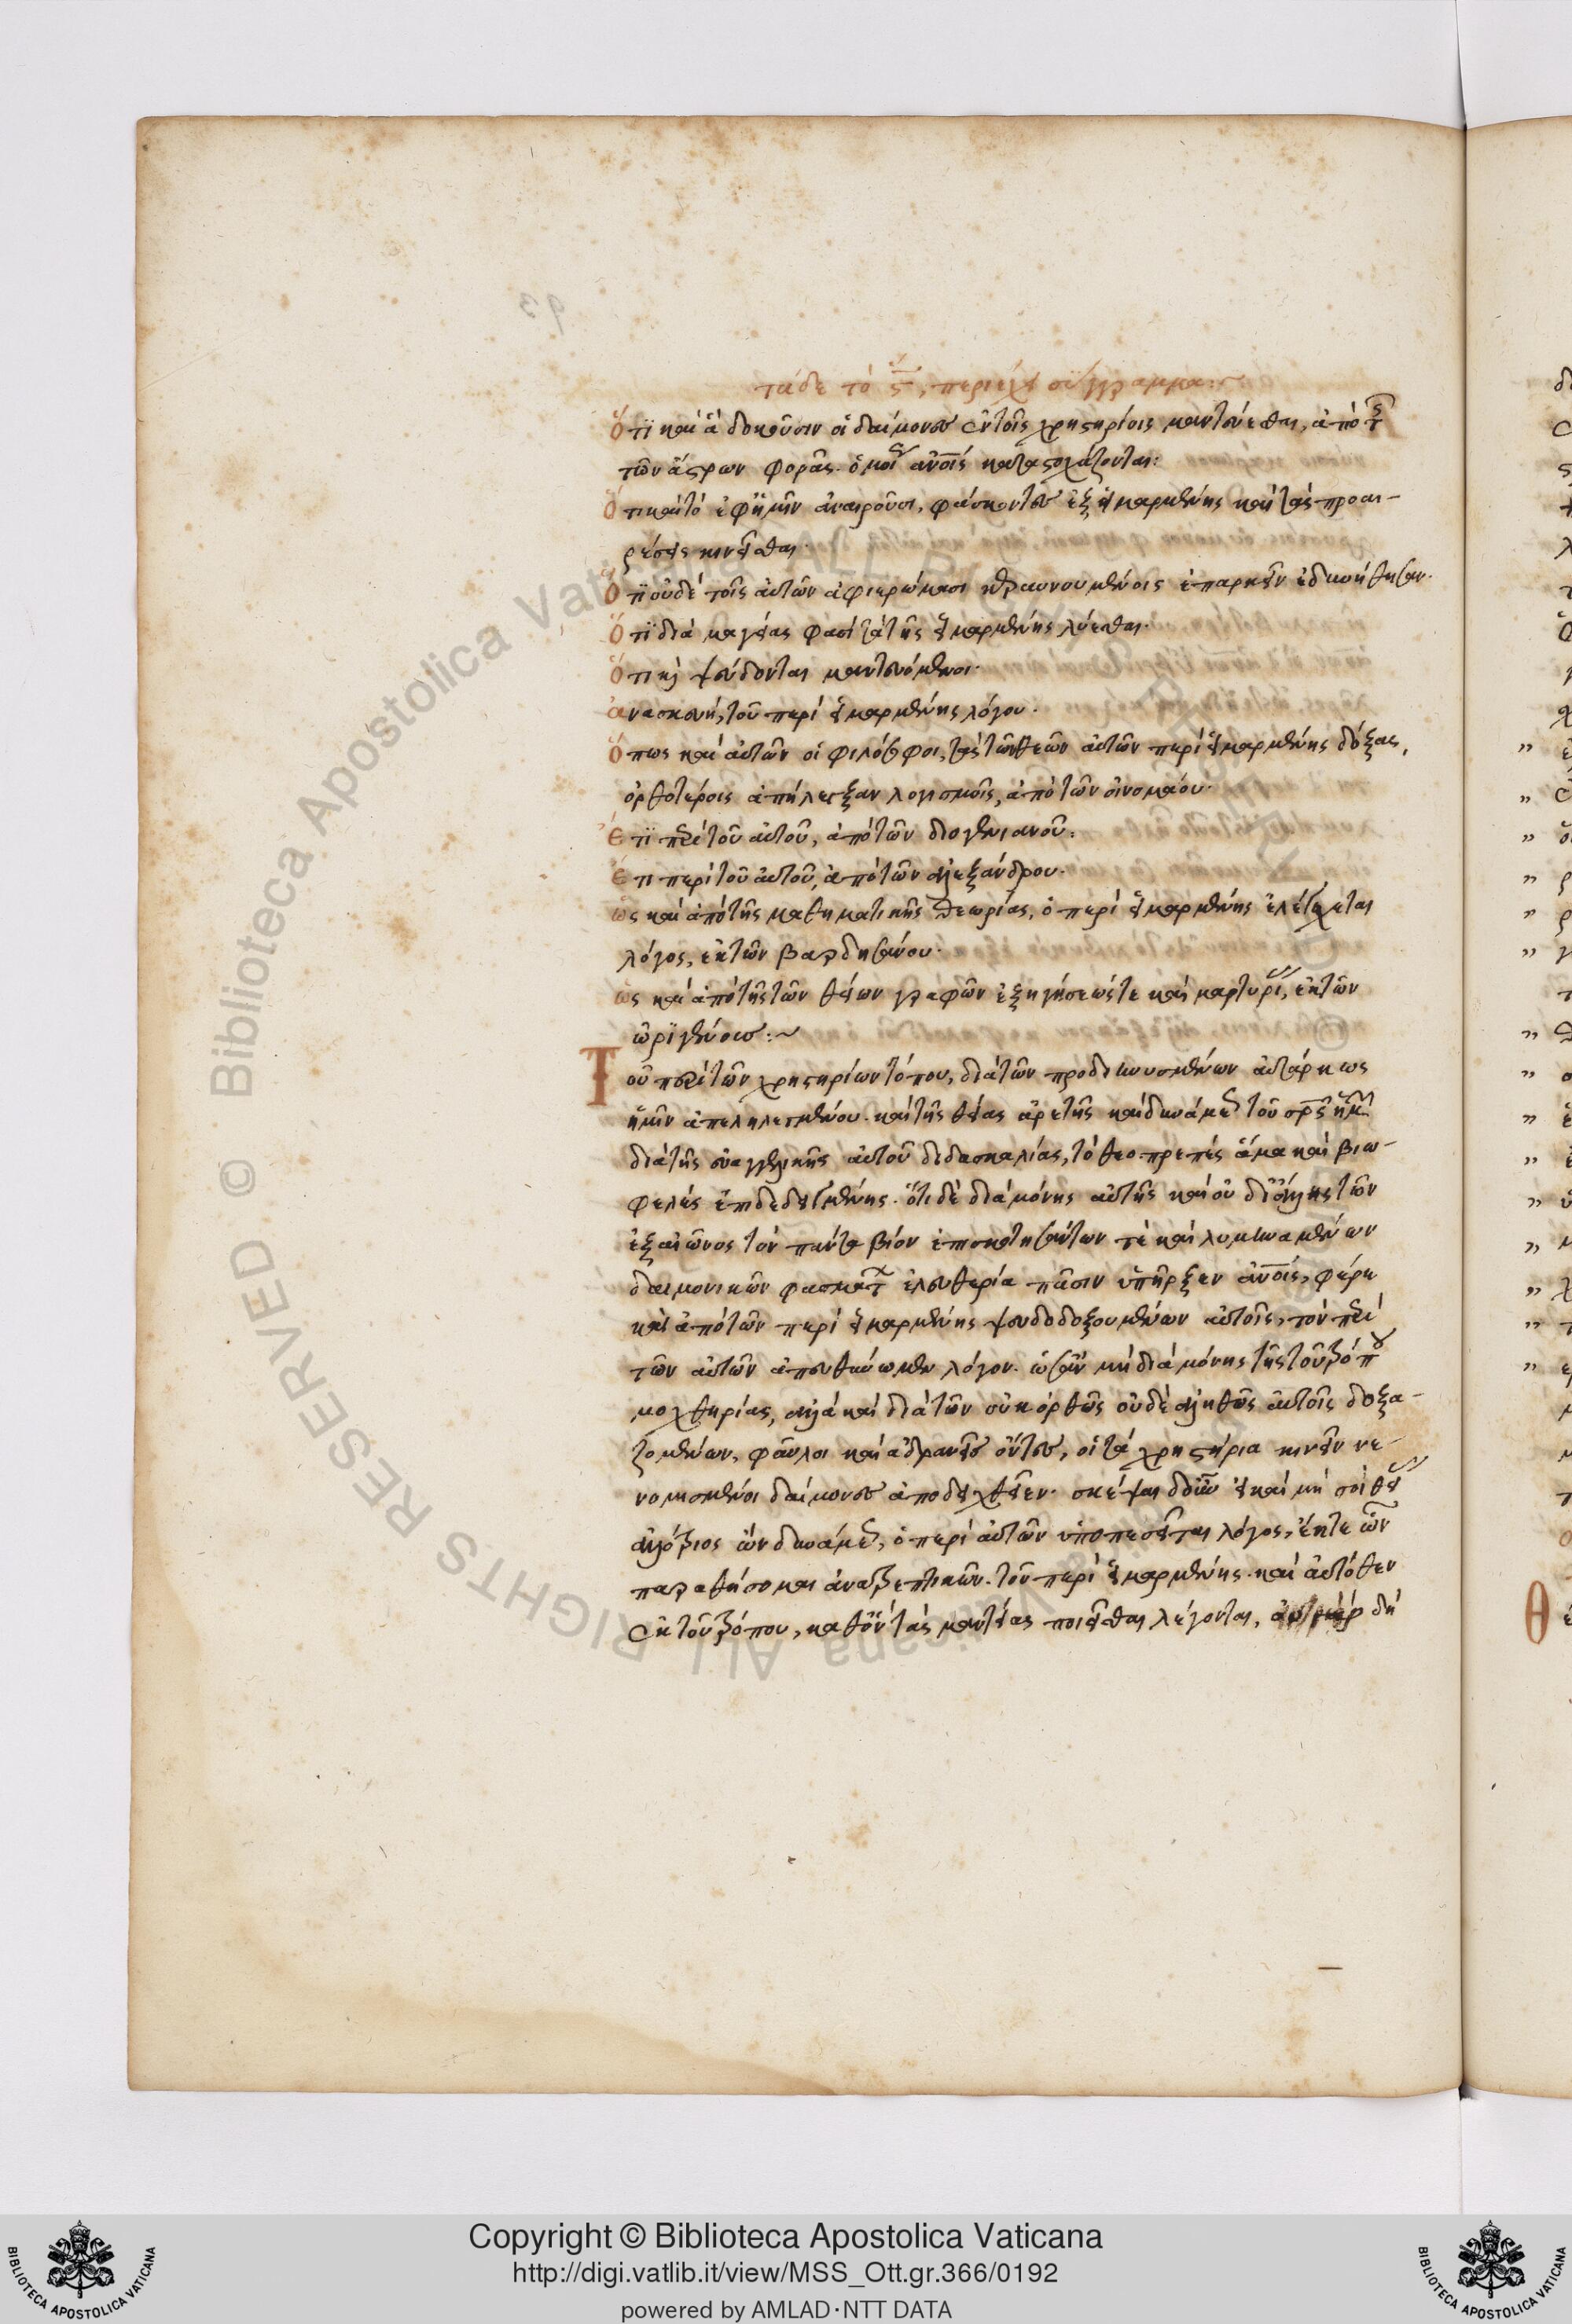 τάδε τὸ ϛ´, περιέχει σύγγραμμα:~
ὅτι καὶ ἃ δοκοῦσιν οἱ δαίμονες ἐν τοῖς χρηστηρίοις μαντεύεσθαι, ἀπὸ τῆς
τῶν ἄστρων φορᾶς. ὁμοίως ἀνοις καταστοχάζονται:
ὅτι καὶ τὸ ἐφ' ἡμῖν ἀναιροῦσι, φάσκοντες ἐξ εἱμαρμένης καὶ τὰς προαι-
ρέσεις κινεῖσθαι.
ὅτι οὐδὲ τοῖς αὐτῶν ἀφιερώμασι κεραυνουμένοις ἐπαρκεῖν ἐδυνήθησαν.
ὅτι διὰ μαγείας φασὶ τὰ τῆς εἱμαρμένης λύεσθαι.
ὅτι καὶ ψεύδονται μαντευόμενοι.
ἀνασκευὴ, τοῦ περὶ εἱμαρμένης λόγου.
ὅπως καὶ αὐτῶν οἱ φιλόσοφοι, τὰς τῶν θεῶν αὐτῶν περὶ εἱμαρμένης δόξας,
ὀρθοτέροις ἀπήλεγξαν λογισμοῖς, ἀπὸ τῶν οἰνομάου.
ἔτι περὶ τοῦ αὐτοῦ, ἀπὸ τῶν διογενιανοῦ.
ἔτι περὶ τοῦ αὐτοῦ, ἀπὸ τῶν ἀλεξάνδρου.
ὡς καὶ ἀπὸ τῆς μαθηματικῆς θεωρίας, ὁ περὶ εἱμαρμένης ἐλέγχεται
λόγος, ἐκ τῶν βαρδησάνου.
ὡς καὶ ἀπὸ τῆς τῶν θείων γραφῶν ἐξηγήσεώς τε καὶ μαρτυρίας, ἐκ τῶν
ὠριγένους:~
Τοῦ περὶ τῶν χρηστηρίων τόπου, διὰ τῶν προδιηνυσμένων αὐτάρκως
ἡμῖν ἀπεληλεγμένου. καὶ τῆς θείας ἀρετῆς καὶ δυνάμεως τοῦ σρς ἡμῶν
διὰ τῆς εὐαγγελικῆς αὐτοῦ διδασκαλίας, τὸ θεοπρεπὲς ἅμα καὶ βιω-
φελὲς ἐπιδεδειγμένης. ὅτι δὲ διὰ μόνης αὐτῆς καὶ οὐ δι' ἄλλης τῶν
ἐξ αἰῶνος τὸν πάντα βίον ἐπισκοτησάντων τὲ καὶ λυμηναμένων
δαιμονικῶν φασμάτων ἐλευθερία πᾶσιν ὑπῆρξεν ἀνοις, φέρε
καὶ ἀπὸ τῶν περὶ εἱμαρμένης ψευδοδοξουμένων αὐτοῖς, τὸν περὶ
τῶν αὐτῶν ἀπευθύνωμεν λόγον. ὡσὰν μὴ διὰ μόνης τῆς τοῦ τρόπου
μοχθηρίας, ἀλλὰ καὶ διὰ τῶν οὐκ ὀρθῶς οὐδὲ ἀληθῶς αὐτοῖς δοξα-
ζομένων, φαῦλοι καὶ ἀδρανεῖς ὄντες, οἱ τὰ χρηστήρια κινεῖν νε-
νομισμένοι δαίμονες ἀποδειχθεῖεν. σκέψαι δ' οὖν εἰ καὶ μὴ σοὶ θείας
ἀλλότριος ὢν δυνάμεως, ὁ περὶ αὐτῶν ὑποπεσεῖται λόγος, ἔκ τε ὧν
παραθήσομαι ἀνατρεπτικῶν. τῶν περὶ εἱμαρμένης. καὶ αὐτόθεν
ἐκ τοῦ τρόπου, καθ' ὃν τὰς μαντείας ποιεῖσθαι λέγονται, δὴ